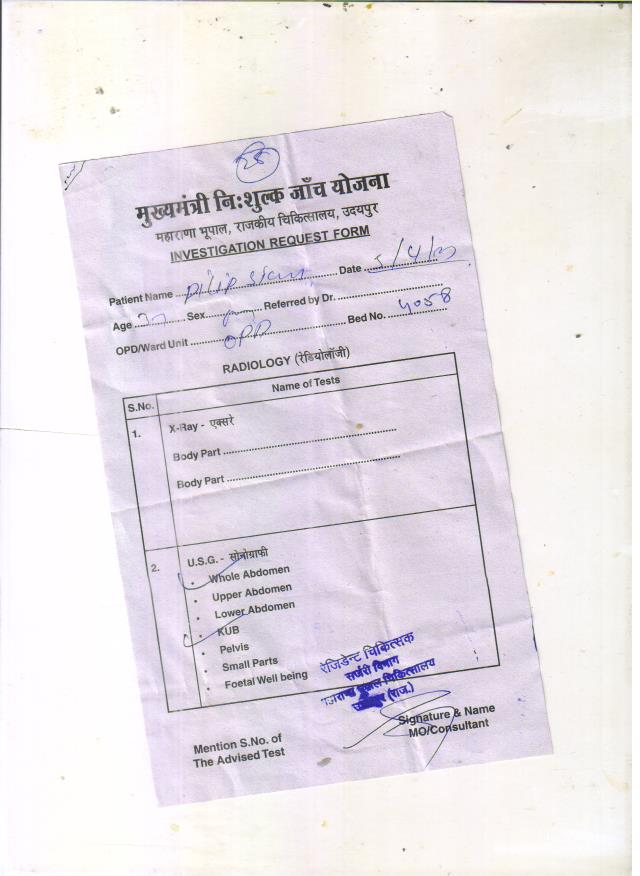 28
मुख्यमंत्री निःशुल्क जाँच योजना
महाराणा भूपाल, राजकीय चिकित्सालय, उदयपुर
INVESTIGATION REQUEST FORM
Patient Name Dilip Date 5/4/
Age 27 Sex m Referred by Dr.
OPD/Ward Unit OPD Bed No. 4058
RADIOLOGY (रेडियोलॉजी)
S.No. Name of Tests
1. X-Ray - एक्सरे
Body Part
Body Part
2. U.S.G. - सोनोग्राफी
• Whole Abdomen
• Upper Abdomen
• Lower Abdomen
• KUB
• Pelvis
• Small Parts
• Foetal Well being
रेजिडेन्ट चिकित्सक
सर्जरी विभाग
चिकित्सालय
(राज.)
Signature & Name
MO/Consultant
Mention S.No. of
The Advised Test